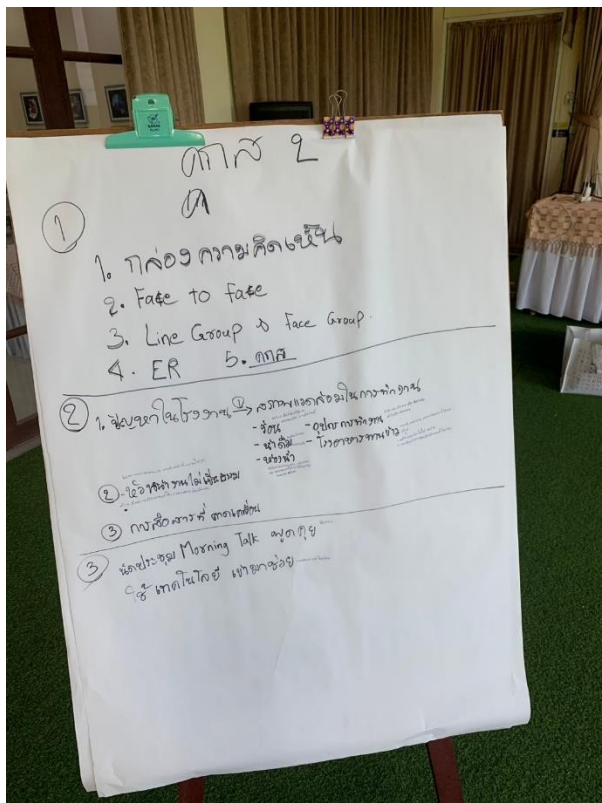 คกส 2
①
1. กล่องความคิดเห็น
2. Face to face
3. Line Group & Face Group.
4. ER 5. คกส
② 1. ปัญหาในโรงงาน → ① สภาพแวดล้อมในการทำงาน
- ร้อน - อุปกรณ์ทำงาน
- น้ำดื่ม - โรงอาหารทานข้าว
- ห้องน้ำ
② - หัวหน้างานไม่เป็นธรรม
③ การสื่อสารที่คลาดเคลื่อน
③ นัดประชุม Morning Talk พูดคุย
ใช้เทคโนโลยี เข้ามาช่วย